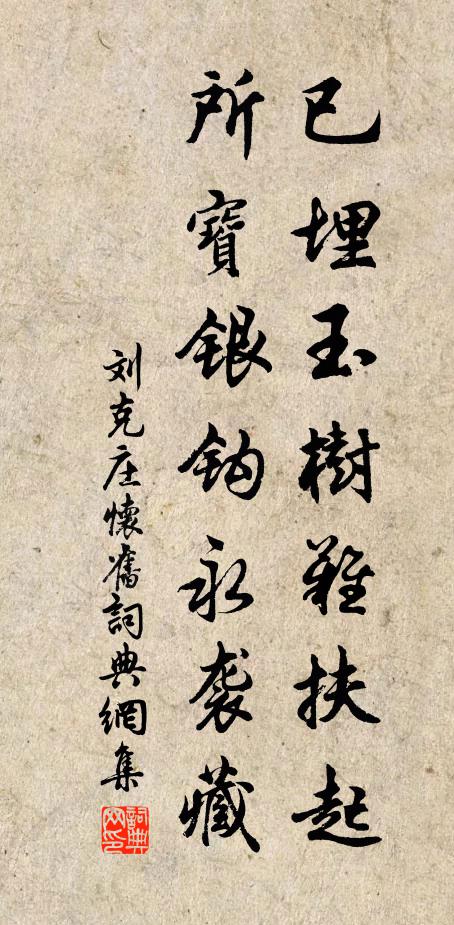 已埋玉樹難扶起
所寶銀鈎永袭藏
刘克庄懷舊詞典網集
詞典网印